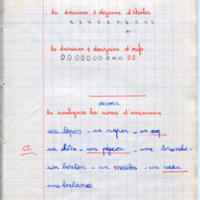 tu dessines 1 dizaine d'étoiles
tu dessines 1 douzaine d'œufs
devoir
tu soulignes les noms d'animaux
un lapin - un sapin - un coq
un chêne - un pigeon - une branche
un bouton - un - un seau
une balance